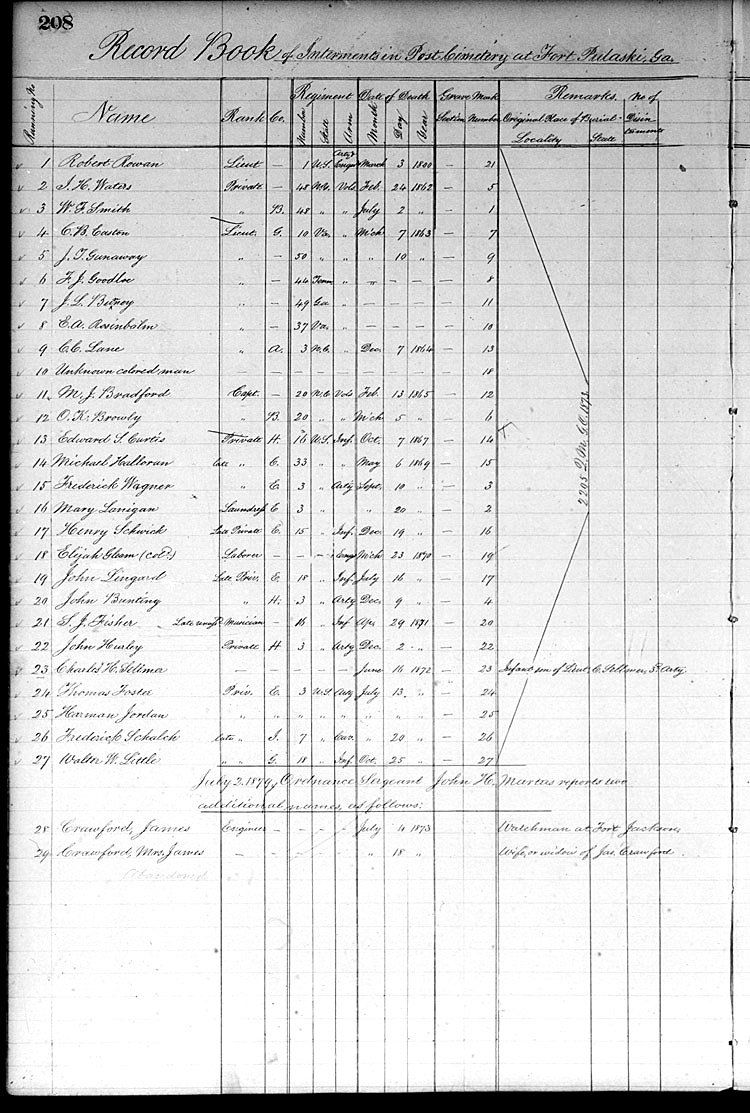 208
Record Book of Interments in Post Cemetery at Fort Pulaski, Ga.
Running No Name Rank Co. Regiment Number State Arm Date of Death Month Day Year Grave Mark Section Number Remarks. Original Place of Burial- Locality State No of Disinterments
1 Robert Rowan Lieut — 1 U.S. Arty & Engrs March 3 1800 — 21
2 J. H. Waters Private — 48 N.Y. Vols Feb. 24 1862 — 5
3 W. F. Smith " B. 48 " " July 2 " — 1
4 C. B. Easton Lieut. G. 10 Va. " Mch 7 1863 — 7
5 J. T. Gunaway " — 50 " " " 10 " — 9
6 F. J. Goodloe " — 44 Tenn " — — — — 8
7 J. L. " — 49 Ga " — — — — 11
8 E. A. Rosenbalm " — 37 Va. " — — — — 10
9 C. C. Lane " A. 3 N.C. " Dec. 7 1864 — 13
10 Unknown colored man — — — — — — — — — 18
11 M. J. Bradford Capt. — 20 N.C. Vols Feb. 13 1865 — 12
12 O. K. " B. 20 " " Mch 5 " — 6
13 Edward S. Curtis Private H. 16 U.S. Inf. Oct. 7 1867 — 14
14 Michael Halloran late " C. 33 " " May 6 1869 — 15
15 Frederick Wagner " C. 3 " Arty Sept. 10 " — 3
16 Mary Lanigan Laundress C 3 " " " 20 " — 2
17 Henry Schwick Late Private E. 15 " Inf. Dec. 19 " — 16
18 Elijah Gleam (cold.) Laborer — — — Engr Mch 23 1870 — 19
19 John Lingard Late Priv. E. 18 " Inf. July 16 " — 17
20 John Bunting " H. 3 " Arty Dec. 9 " — 4
21 S. J. Fisher Late Musician — 16 " Inf Apr. 29 1871 — 20
22 John Hurley Private H 3 " Arty Dec. 2 " — 22
23 Charles H. Sellmer — — — — — June 16 1872 — 23 Infant son of Lieut. C. Sellmer, 3d Arty
24 Thomas Foster Priv. E. 3 U.S. Arty July 13 " — 24
25 Harman Jordan " " " " " " " " — 25
26 Frederick Schalch late " I. 7 " Cav. " 20 " — 26
27 Walter W. Little " " G. 18 " Inf. Oct. 25 " — 27
2205 Q.M.G.O. 1873.
July 2. 1879, Ordnance Sergeant John H. reports two
additional names, as follows:
28 Crawford, James Engineer — — — — July 4 1873 Watchman at Fort Jackson
29 Crawford, Mrs. James — — — — — " 18 " Wife, or widow of Jas. Crawford.
Abandoned